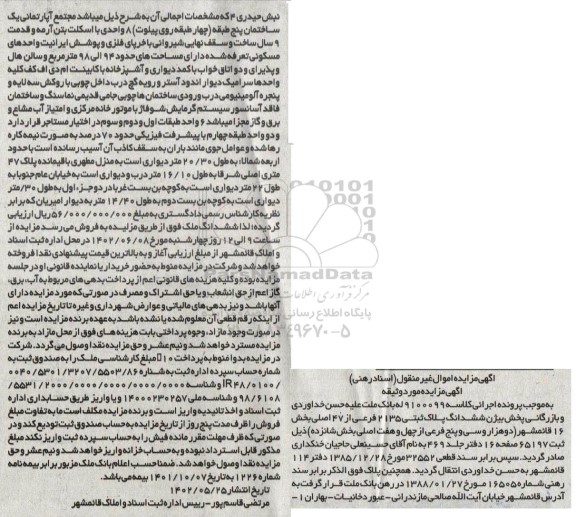 آگهی مزایده اموال غیر منقول (اسناد رهنی)
آگهی مزایده مورد وثیقه
به موجب پرونده اجرائی کلاسه ۹۱۰۰۰۹۹ له بانک ملت علیه حسن خداوردی
و بازرگانی بخش بیژن ششدانگ پلاک ثبتی ۲۱۳۵ فرعی از ۴۷ اصلی بخش
۱۶ قائمشهر (دو هزار و سی و پنج فرعی از چهل و هفت اصلی بخش شانزده) ذیل
ثبت ۶۵۱۹۷ صفحه ۱۶ دفتر جلد ۴۶۹ به نام آقای حسینعلی حاجیان خنکداری
صادر گردید. سپس برابر سند قطعی ۳۲۵۵۲ مورخ ۱۳۸۵/۱۲/۲۸ دفتر ۱۱۴
قائمشهر به حسن خداوردی انتقال گردید. همچنین پلاک فوق الذکر برابر سند
رهنی شماره ۱۶۵۰۵ مورخ ۱۳۸۸/۰۱/۲۷ در رهن بانک ملت قرار گرفت به
آدرس قائمشهر خیابان آیت الله صالحی مازندرانی - عبور دخانیات - بهاران ۱-
نبش حیدری ۴ که مشخصات اجمالی آن به شرح ذیل میباشد مجتمع آپارتمانی یک
ساختمان پنج طبقه (چهار طبقه روی پیلوت) ۸ واحدی با اسکلت بتن آرمه و قدمت
۹ سال ساخت و سقف نهایی شیروانی با خرپای فلزی و پوشش ایرانیت واحدهای
مسکونی تعرفه شده دارای مساحت های حدود ۹۴ الی ۹۸ متر مربع و سالن هال
و پذیرایی و دو اتاق خواب با کمد دیواری و آشپزخانه با کابینت ام دی اف کف کلیه
واحدها سرامیک دیوار اندود آستر و رویه گچ درب داخل چوبی با روکش سه لایه و
پنجره آلومینیومی درب ورودی ساختمان ها چوبی جامی قدیمی نما سنگ و ساختمان
فاقد آسانسور سیستم گرمایش شوفاژ با موتورخانه مرکزی و امتیاز آب مشاع و
برق و گاز مجزا میباشد ۶ واحد طبقات اول و دوم و سوم در اختیار مستاجر قرار دارد
و دو واحد طبقه چهارم با پیشرفت فیزیکی حدود ۷۰ درصد به صورت نیمه کاره
رها شده و عوامل جوی مانند باران به سقف کاذب آن آسیب رسانده است با حدود
اربعه شمالا: به طول ۲۰/۳۰ متر دیواری است به منزل مطهری باقیمانده پلاک ۴۷
متری اصلی شرقا به طول ۱۶/۱۰ متر درب و دیواری است به خیابان عام جنوبا به
طول ۲۲ متر دیواری است به کوچه بن بست غربا در دو جز، اول به طول ۳۰/ متر
دیواری است به کوچه بن بست دوم به طول ۱۴/۴۰ متر به دیوار امیریان که برابر
نظریه کارشناس رسمی دادگستری به مبلغ ۵۶/۰۰۰/۰۰۰/۰۰۰ ریال ارزیابی
گردیده لذا ششدانگ ملک فوق از طریق مزایده به فروش می رسد مزایده از
ساعت ۹ الی ۱۲ روز چهارشنبه مورخ ۱۴۰۲/۰۶/۰۸ در محل اداره ثبت اسناد
و املاک قائمشهر از مبلغ ارزیابی آغاز و به بالاترین قیمت پیشنهادی نقدا فروخته
خواهد شد و شرکت در مزایده منوط به حضور خریدار یا نماینده قانونی او در جلسه
مزایده بوده و کلیه هزینه های قانونی اعم از پرداخت بدهی های مربوط به آب، برق،
گاز اعم از حق انشعاب و یا حق اشتراک و مصرف در صورتی که مورد مزایده دارای
آنها باشد و نیز بدهی های مالیاتی و عوارض شهرداری و غیره تا تاریخ مزایده اعم
از اینکه رقم قطعی آن معلوم شده یا نشده باشد به عهده برنده مزایده است و نیز
در صورت وجود مازاد، وجوه پرداختی بابت هزینه های فوق از محل مازاد به برنده
مزایده مسترد خواهد شد و نیم عشر و حق مزایده نقدا وصول می گردد. شرکت
در مزایده بدوا منوط به پرداخت ۱۰٪ مبلغ کارشناسی ملک را به صندوق ثبت به
شماره حساب سپرده ثبت به شماره
و شناسه
و شناسه ملی ۱۴۰۰۰۲۳۰۲۵۷ و یا واریز طریق حسابداری اداره
ثبت اسناد و اخذ تائیدیه واریز است و برنده مزایده مکلف است ما به تفاوت مبلغ
فروش را ظرف مدت پنج روز از تاریخ مزایده به حساب صندوق ثبت تودیع کند و در
صورتی که ظرف مهلت مقرر مانده فیش را به حساب سپرده ثبت واریز نکند مبلغ
مذکور قابل استرداد نبوده و به حساب خزانه واریز خواهد شد و نیم عشر و حق
مزایده نقدا وصول خواهد شد. ضمنا حسب اعلام بانک ملک مزبور برابر بیمه نامه
شماره ۱۲۲۶ به تاریخ ۱۴۰۱/۱۰/۰۷ بیمه می باشد.
تاریخ انتشار: ۱۴۰۲/۰۵/۲۵
مرتضی قاسم پور - رییس اداره ثبت اسناد و املاک قائمشهر